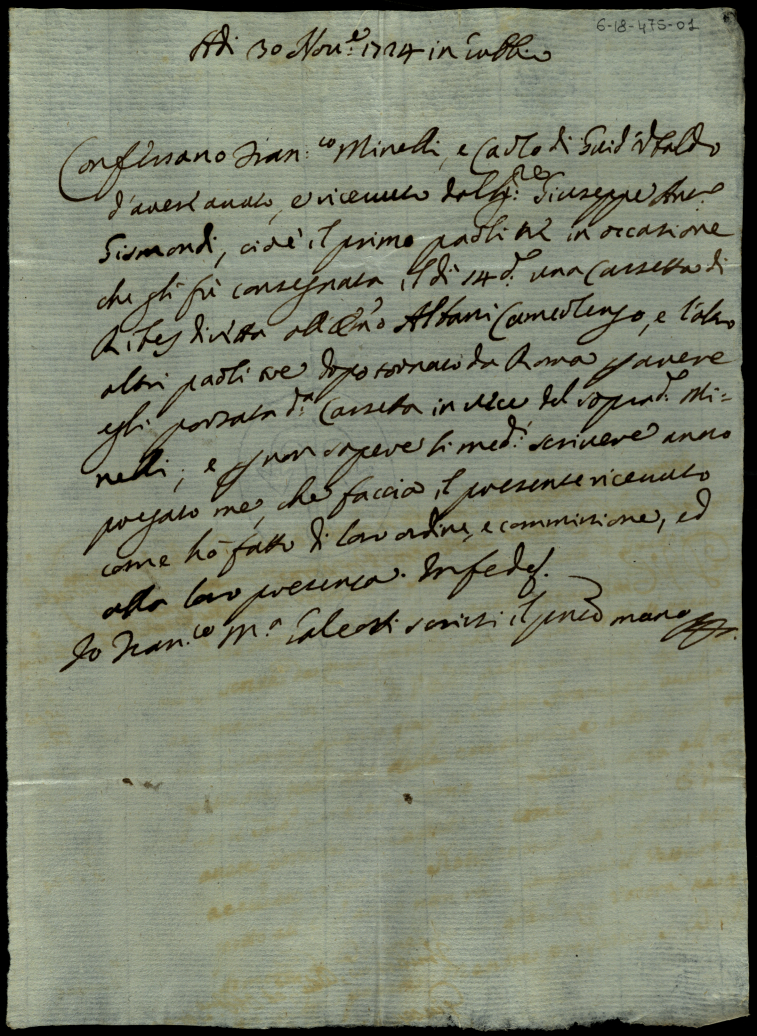 6-18-475-01
Adi 30 Nov.e 1724 in Gubb.o
Confessano Fran.co Minelli, e Carlo di Guid'Ubaldo
d'avere avuto, e ricevuto dal Sig.re Giuseppe Ant.o
Gismondi, cioè il primo paoli tre in occasione
che gli fù consegnata il dì 14 d.o una Cassetta di
diretta all'Em̃o Albani Camerlengo, e l'altro
altri paoli tre dopo tornato da Roma p avere
egli portata d.a Cassetta in vece del soprad.o Mi=
nelli, e p non sapere li med.i scrivere anno
pregato me, che faccia il presente ricevuto
come hò fatto di loro ordine, e commissione, ed
alla loro presenza. In fede
Io Fran.co M.a Galeotti scrissi il pñte mano pp.